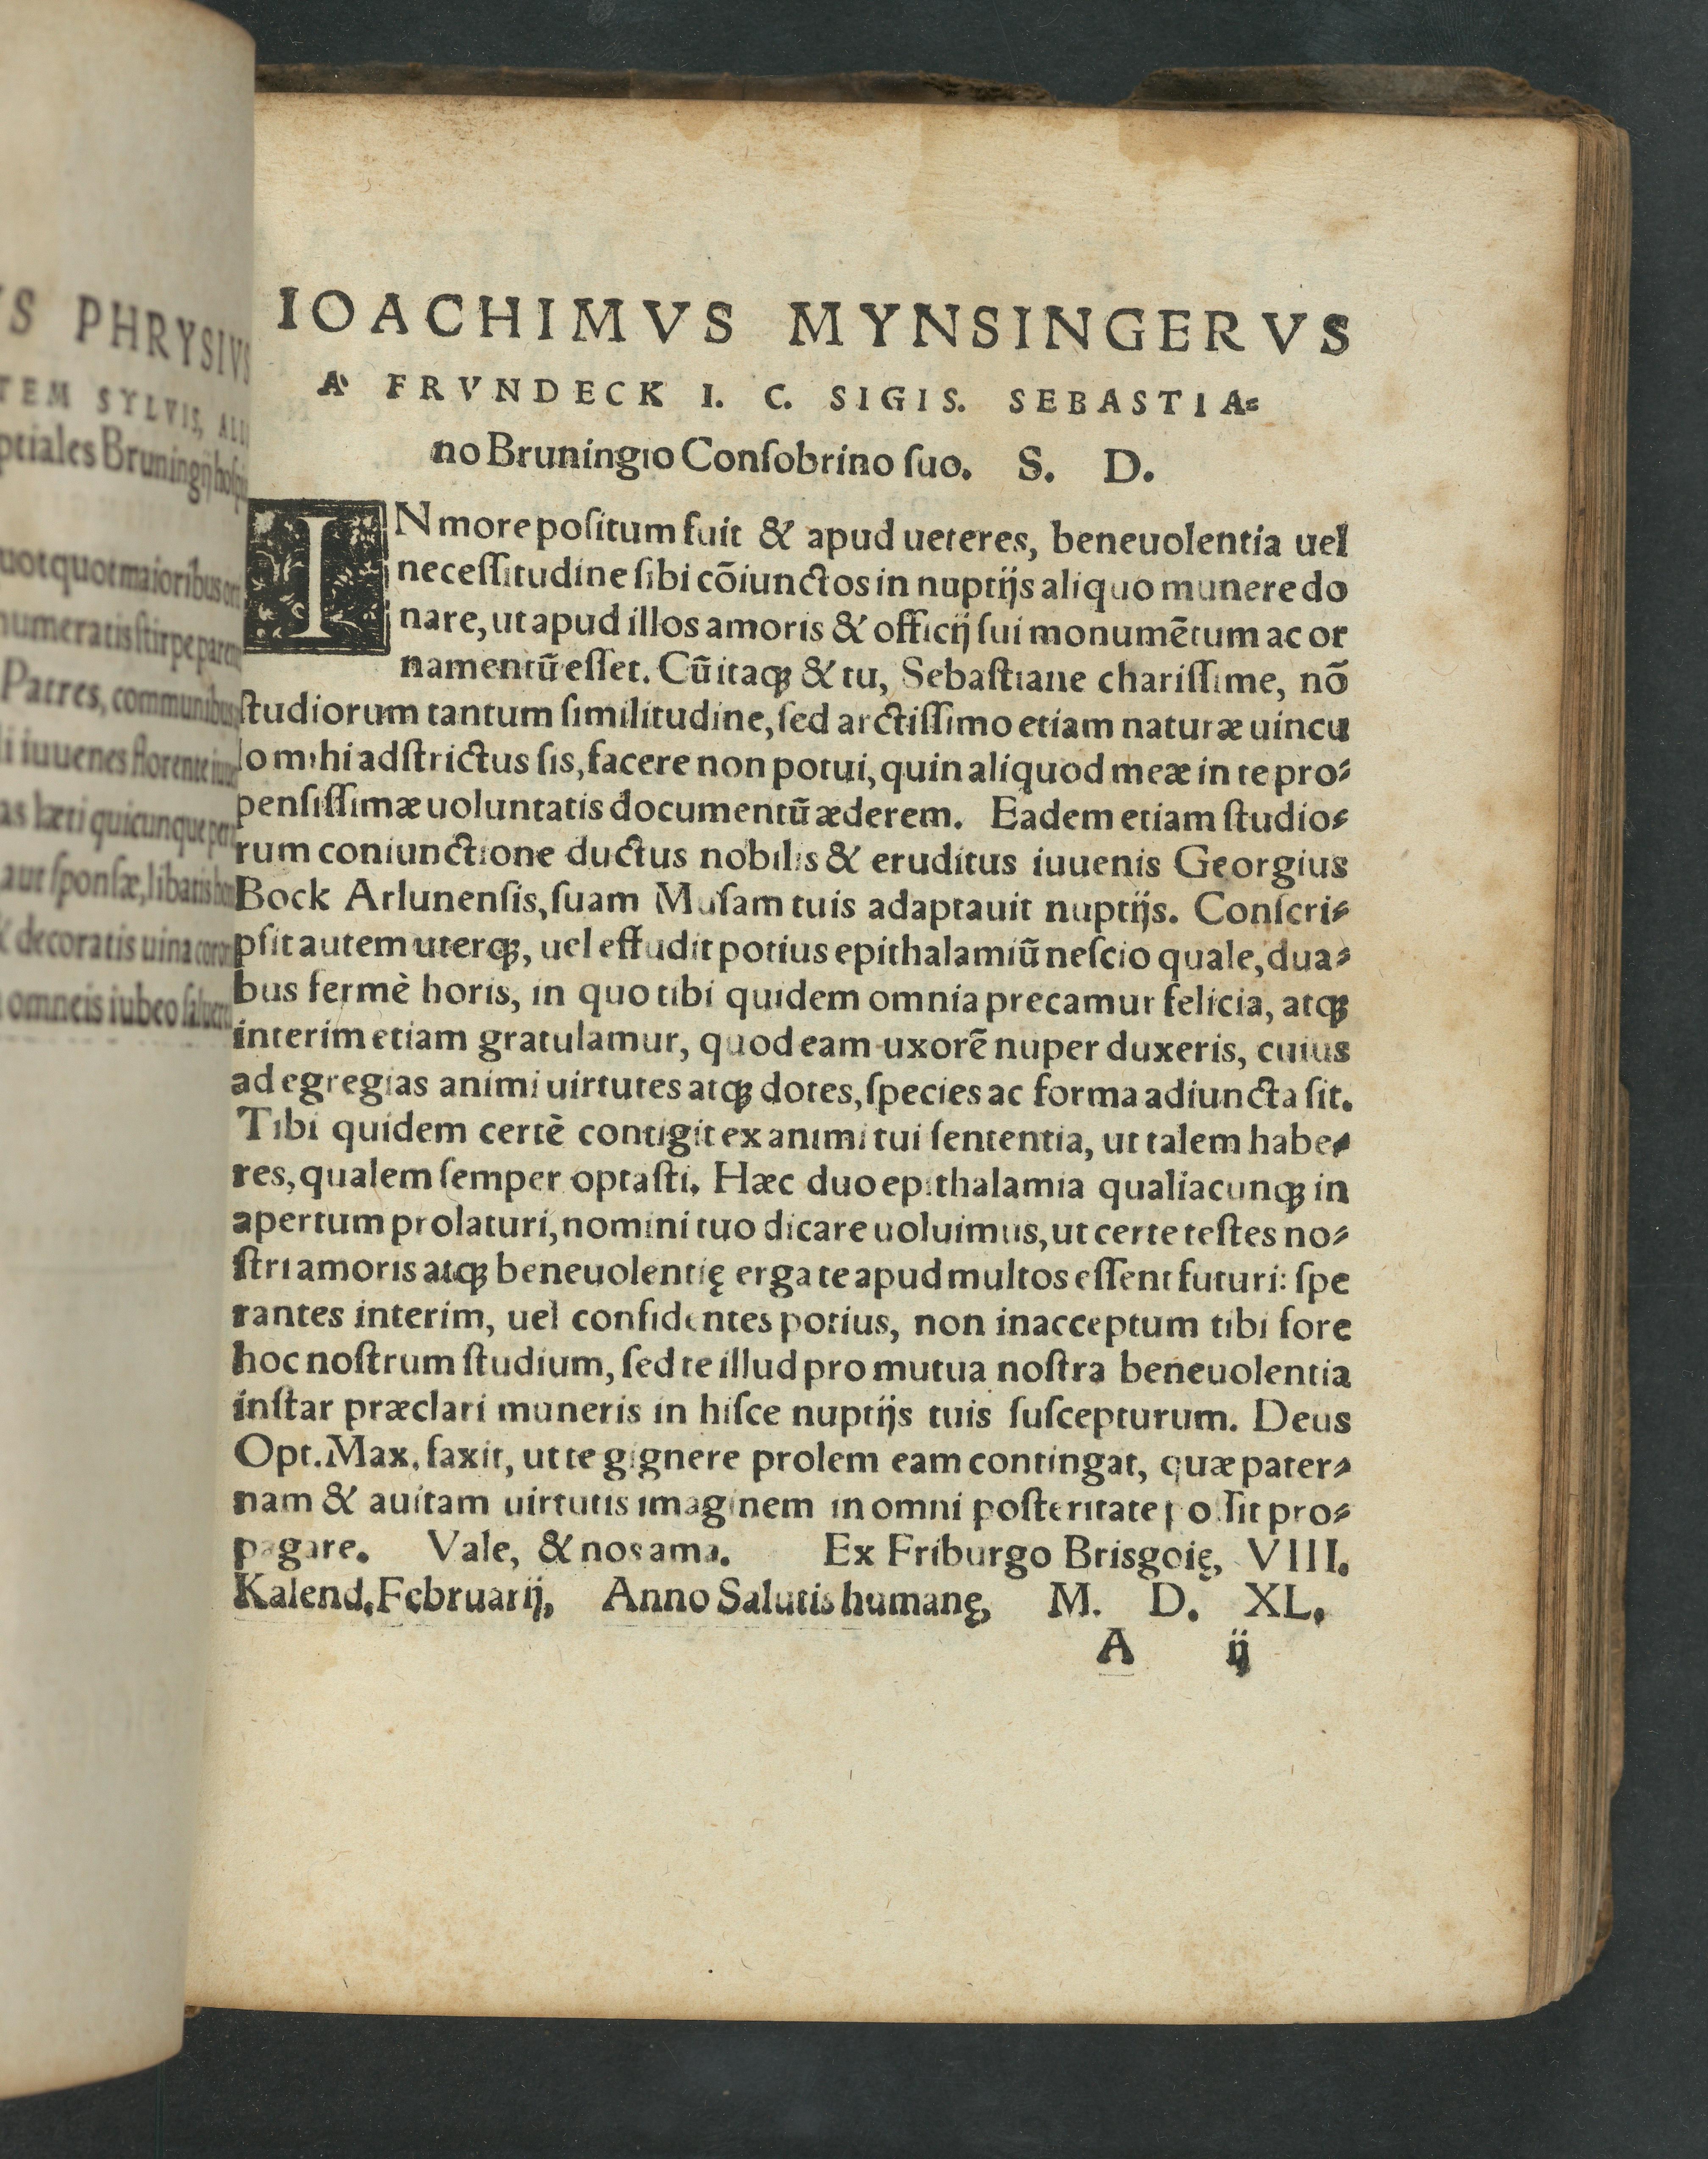 VS PHRYSIVS
TEM SYLVIS,
ptiales Bruningij
uot quot maioribus
numeratis ſtirpe
Patres, communibus
li iuuenes florente
as læti quicunque
aut ſponſæ, libatis
& decoratis uina
omneis iubeo
IOACHIMVS MYNSINGERVS
A FRVNDECK I. C. SIGIS. SEBASTIA=
no Bruningio Conſobrino ſuo. S. D.
IN more poſitum fuit & apud ueteres, beneuolentia uel
neceſſitudine ſibi cõiunctos in nuptijs aliquo munere do
nare, ut apud illos amoris & officij ſui monumẽtum ac or
namentũ eſſet. Cũ itaqꝫ & tu, Sebaſtiane chariſſime, nõ
ſtudiorum tantum ſimilitudine, ſed arctiſſimo etiam naturæ uincu
lo mihi adſtrictus ſis, facere non potui, quin aliquod meæ in te pro⸗
penſiſſimæ uoluntatis documentũ æderem. Eadem etiam ſtudio⸗
rum coniunctione ductus nobilis & eruditus iuuenis Georgius
Bock Arlunenſis, ſuam Muſam tuis adaptauit nuptijs. Conſcri⸗
pſit autem uterqꝫ, uel effudit potius epithalamiũ neſcio quale, dua⸗
bus fermè horis, in quo tibi quidem omnia precamur felicia, atqꝫ
interim etiam gratulamur, quod eam uxorẽ nuper duxeris, cuius
ad egregias animi uirtutes atqꝫ dotes, ſpecies ac forma adiuncta ſit.
Tibi quidem certè contigit ex animi tui ſententia, ut talem habe⸗
res, qualem ſemper optaſti. Hæc duo epithalamia qualiacunqꝫ in
apertum prolaturi, nomini tuo dicare uoluimus, ut certe teſtes no⸗
ſtri amoris atqꝫ beneuolentię erga te apud multos eſſent futuri: ſpe
rantes interim, uel confidentes potius, non inacceptum tibi fore
hoc noſtrum ſtudium, ſed te illud pro mutua noſtra beneuolentia
inſtar præclari muneris in hiſce nuptijs tuis ſuſcepturum. Deus
Opt. Max. faxit, ut te gignere prolem eam contingat, quæ pater⸗
nam & auitam uirtutis imaginem in omni poſteritate poſſit pro⸗
pagare. Vale, & nos ama. Ex Friburgo Brisgoię, VIII.
Kalend. Februarij, Anno Salutis humanę, M. D. XL.
A ij